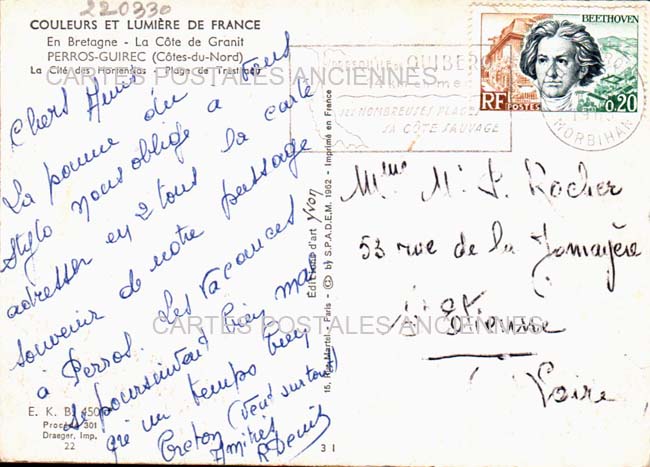 220330
COULEURS ET LUMIÈRE DE FRANCE
En Bretagne - La Côte de Granit
PERROS-GUIREC (Côtes-du-Nord)
La Cité des Hortensias - Plage de Trestraou
CARTES POSTALES ANCIENNES
Chers Amis
La panne du
stylo nous oblige à tous
adresser en 2 tons la carte
souvenir de notre passage
à Perros. Les vacances
se poursuivent bien mais
avec un temps bien
breton (vent surtout)
Amitiés
R Denis
E. K. B. 450
Procédé 301
Draeger, Imp.
22
3 1
Editions d'art yvon
15, Rue Martel - Paris - © by S.P.A.D.E.M. 1962 - Imprimé en France
PRESQU'ILE QUIBERON
SES NOMBREUSES PLAGES
SA CÔTE SAUVAGE
MORBIHAN
BEETHOVEN
RF
POSTES
0,20
Mme Mr J. Rocher
53 rue de la Jomayère
St Etienne
Loire
CARTES POSTALES ANCIENNES